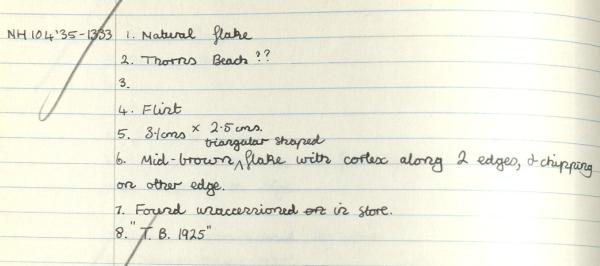 NH 104'35-1333 1. Natural flake
2. Thorns Beach ??
3.
4. Flint
5. 3.1cms × 2.5cms.
triangular shaped
6. Mid-brown ^ flake with cortex along 2 edges, & chipping
on other edge.
7. Found unaccessioned on in store.
8. "T. B. 1925"